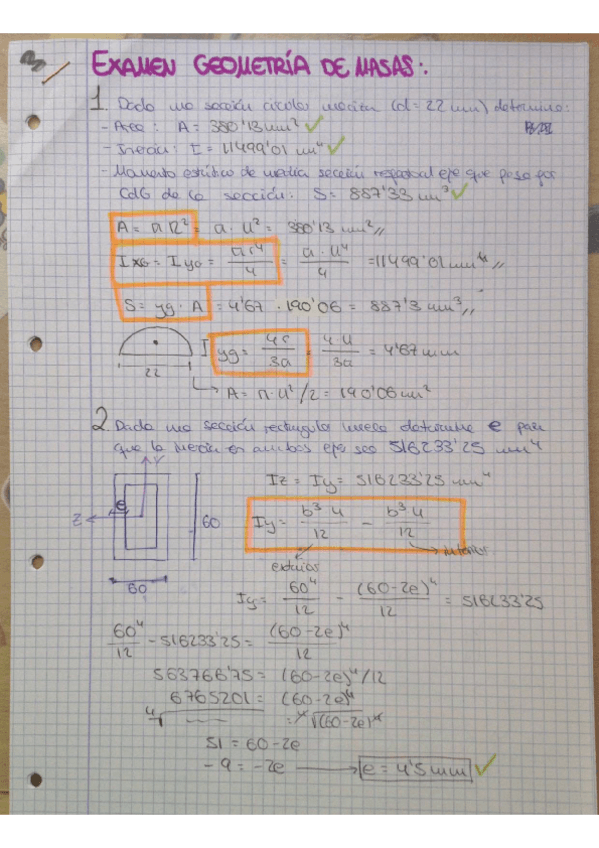 EXAMEN GEOMETRÍA DE MASAS:.
1. Dada una sección circular maciza (d = 22 mm) determina:
- Area: A = 380'13 mm² ✓
- Inercia: I = 11499'01 mm⁴ ✓
- Momento estático de media sección respecto al eje que pasa por
CdG de la sección: S = 887'33 mm³ ✓
A = π R² = π · 11² = 380'13 mm² //
I xG = I yG = πr⁴/4 = π · 11⁴/4 = 11499'01 mm⁴ //
S = yg · A = 4'67 · 190'06 = 887'3 mm³ //
I yg = 4r/3π = 4·11/3π = 4'67 mm
22
A = π · 11²/2 = 190'06 mm²
2. Dada una sección rectangular hueca determine e para
que la inercia en ambos ejes sea 516233'25 mm⁴
Y
Iz = Iy = 516233'25 mm⁴
e
Z
60
Iy = b³·h/12 - b³·h/12
interior
exterior
60
Iy = 60⁴/12 - (60-2e)⁴/12 = 516233'25
60⁴/12 - 516233'25 = (60-2e)⁴/12
563766'75 = (60-2e)⁴/12
6765201 = (60-2e)⁴
⁴√ = ⁴√(60-2e)⁴
51 = 60-2e
-9 = -2e → e = 4'5 mm ✓